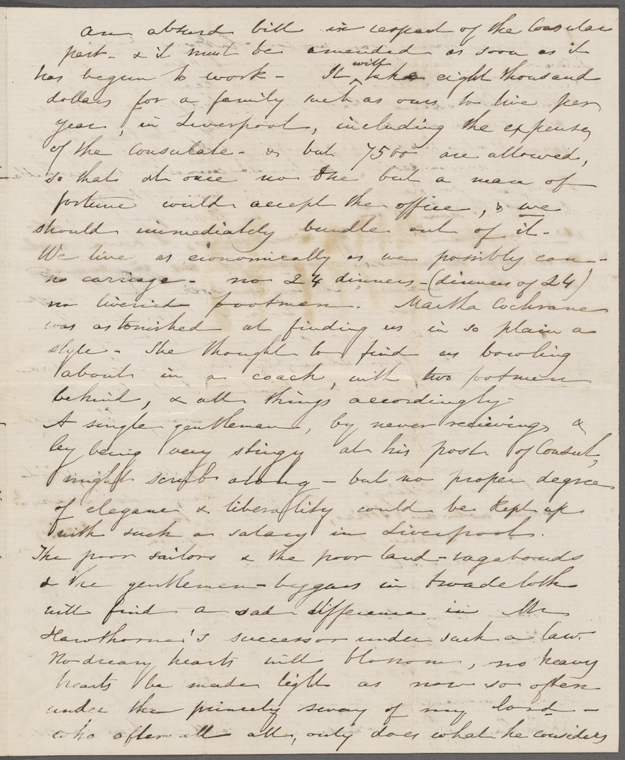 an absurd bill in respect of the Consular
part - & it must be amended as soon as it
has begun to work - It will take eight thousand
dollars for a family such as ours to live per
year, in Liverpool, including the expenses
of the Consulate - & but 7500 are allowed,
so that at once no one but a man of
fortune would accept the office, & we
should immediately bundle out of it -
We live as economically as we possibly can -
no carriage - no 24 dinners - (dinners of 24)
no liveried footmen. Martha Cochrane
was astonished at finding us in so plain a
style - She thought to find us bowling
about in a coach, with two footmen
behind, & all things accordingly.
A single gentleman, by never recieving &
by being very stingy at his post of Consul,
might scrub along - but no proper degree
of elegance & liberality could be kept up
with such a salary in Liverpool.
The poor sailors & the poor land-vagabonds
& the gentlemen-beggars in broadcloth
will find a sad difference in Mr
Hawthorne's successor under such a law.
No dreary hearts will blossom, no heavy
hearts be made light as now so often
under the princely sway of my lord -
who after all, only does what he considers